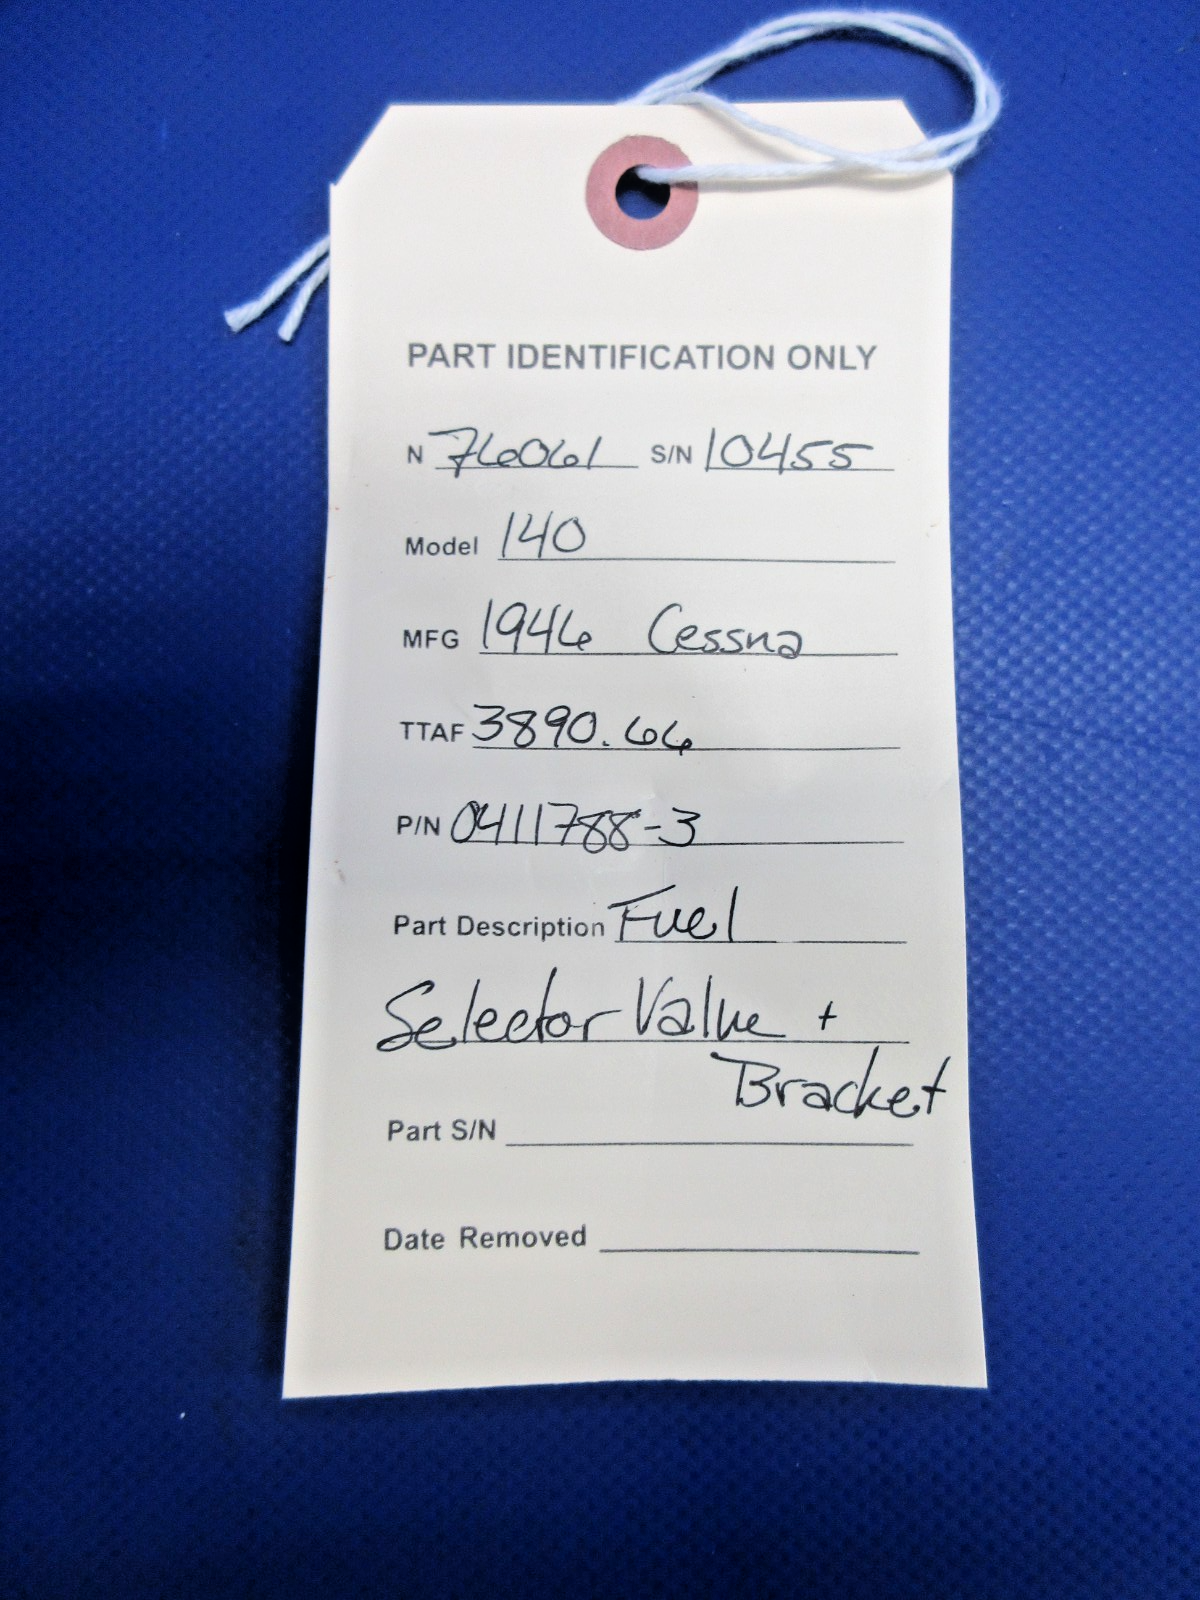 PART IDENTIFICATION ONLY
N 76061 S/N 10455
Model 140
MFG 1946 Cessna
TTAF 3890.66
P/N 0411788-3
Part Description Fuel
Selector Valve +
Bracket
Part S/N
Date Removed